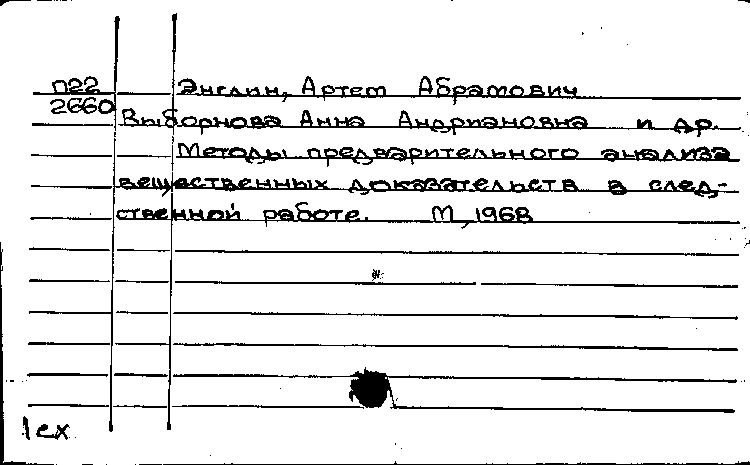 П22 Энглин, Артем Абрамович
2660 Выборнова Анна Андриановна и др.
Методы предварительного анализа
вещественных доказательств в след-
ственной работе. М, 1968
1ex